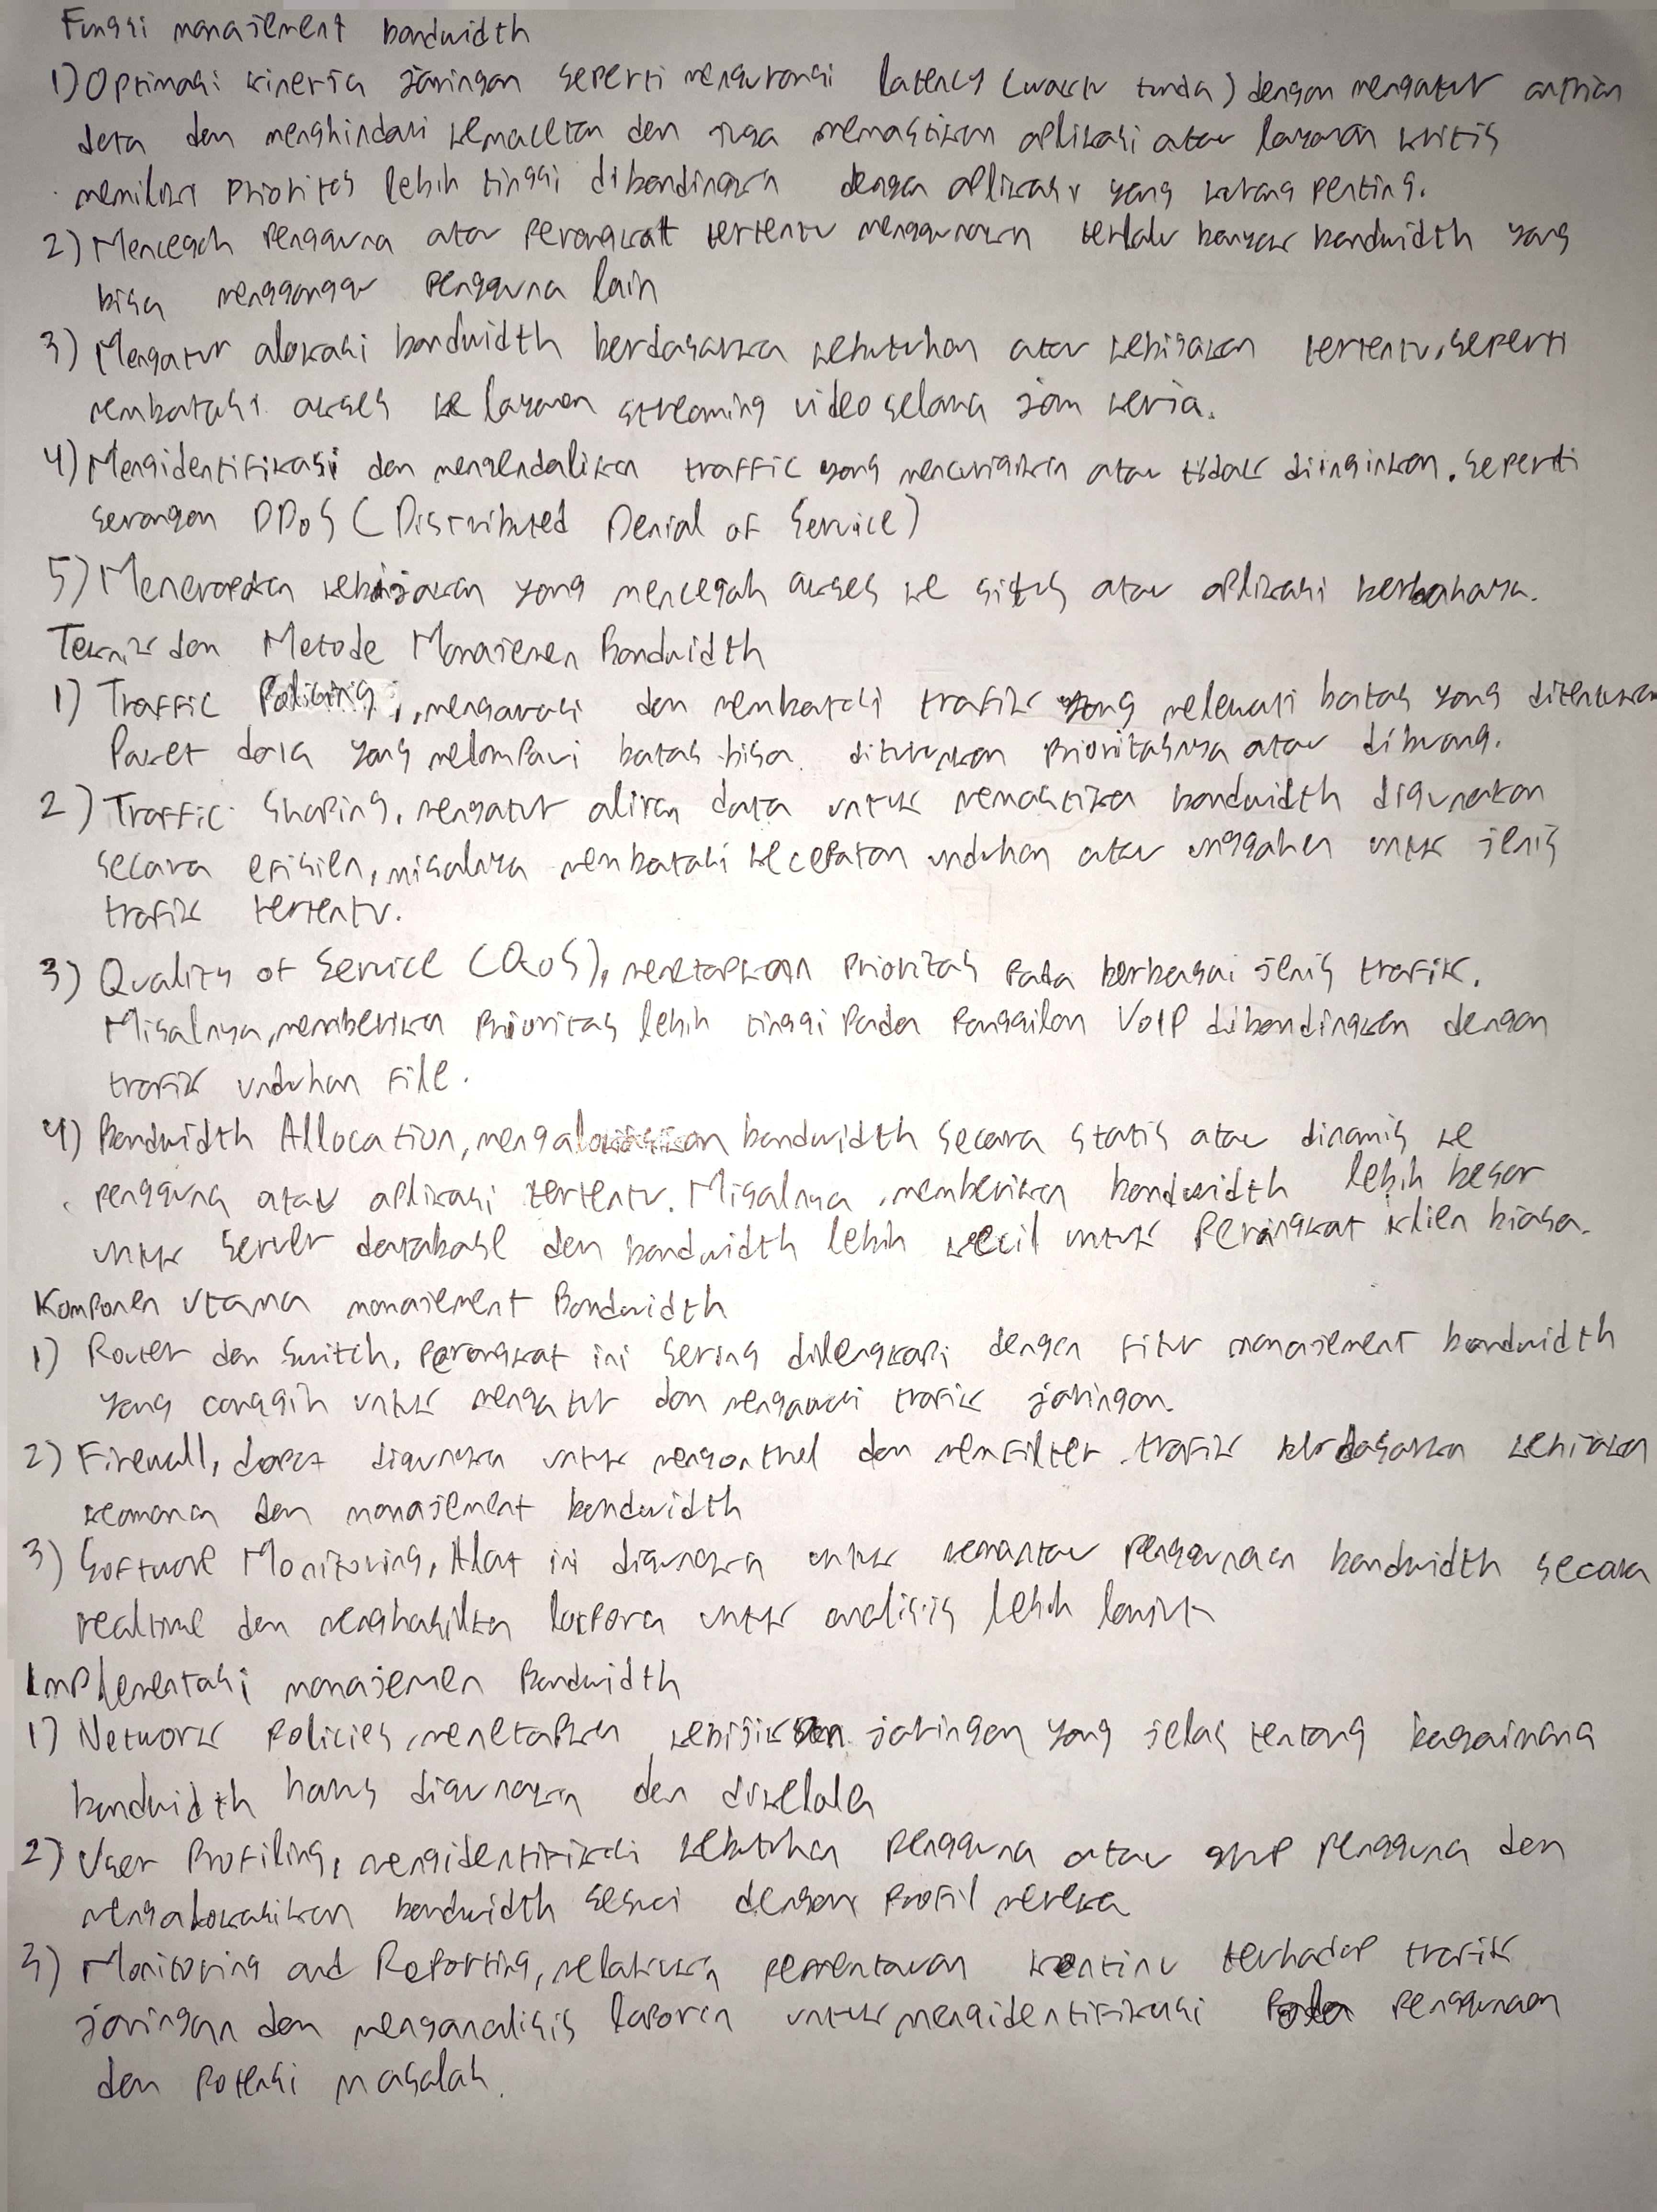 Fungsi manajement bandwidth
1) Optimasi kinerja jaringan seperti mengurangi latency (waktu tunda) dengan mengatur antrian
data dan menghindari kemacetan dan juga memastikan aplikasi atau layanan kritis
memiliki prioritas lebih tinggi dibandingkan dengan aplikasi yang kurang penting.
2) Mencegah pengguna atau perangkatt tertentu menggunakan terlalu banyak bandwidth yang
bisa mengganggu pengguna lain
3) Mengatur alokasi bandwidth berdasarkan kebutuhan atau kebijakan tertentu, seperti
membatasi akses ke layanan streaming video selama jam kerja.
4) Mengidentifikasi dan mengendalikan traffic yang mencurigakan atau tidak diinginkan. seperti
serangan DDoS (Distributed Denial of Service)
5) Menerapkan kebijakan yang mencegah akses ke situs atau aplikasi berbahaya.
Teknik dan Metode Manajemen Bandwidth
1) Traffic Policing, mengawasi dan membatasi trafik yang melewati batas yang ditentukan
Paket data yang melampaui batas bisa diturunkan prioritasnya atau dibuang.
2) Traffic Shaping, mengatur aliran data untuk memastikan bandwidth digunakan
secara efisien, misalnya membatasi kecepatan unduhan atau unggahan untuk jenis
trafik tertentu.
3) Quality of Service (QoS), menetapkan prioritas pada berbagai jenis trafik.
Misalnya, memberikan prioritas lebih tinggi pada panggilan VoIP dibandingkan dengan
trafik unduhan file.
4) Bandwidth Allocation, mengalokasikan bandwidth secara statis atau dinamis ke
pengguna atau aplikasi tertentu. Misalnya, memberikan bandwidth lebih besar
untuk server database dan bandwidth lebih kecil untuk perangkat klien biasa.
Komponen utama manajement Bandwidth
1) Router dan Switch, perangkat ini sering dilengkapi dengan fitur manajement bandwidth
yang canggih untuk mengatur dan mengawasi trafik jaringan.
2) Firewall, dapat digunakan untuk mengontrol dan memfilter trafik berdasarkan kebijakan
keamanan dan manajement bandwidth
3) Software Monitoring, Alat ini digunakan untuk memantau penggunaan bandwidth secara
realtime dan menghasilkan laporan untuk analisis lebih lanjut
Implementasi manajemen Bandwidth
1) Network policies, menetapkan kebijikan jaringan yang jelas tentang bagaimana
bandwidth harus digunakan dan dikelola
2) User Profiling, mengidentifikasi kebutuhan pengguna atau grup pengguna dan
mengalokasikan bandwidth sesuai dengan profil mereka
3) Monitoring and Reporting, melakukan pementauan kontinu terhadap trafik
jaringan dan menganalisis laporan untuk mengidentifikasi pola penggunaan
dan potensi masalah.